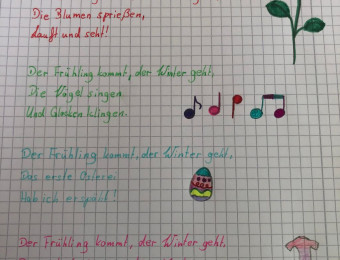 Die Blumen sprießen,
Lauft und seht!
Der Frühling kommt, der Winter geht,
Die Vögel singen
Und Glocken klingen.
Der Frühling kommt, der Winter geht,
Das erste Osterei
Hab ich erspäht.
Der Frühling kommt, der Winter geht,